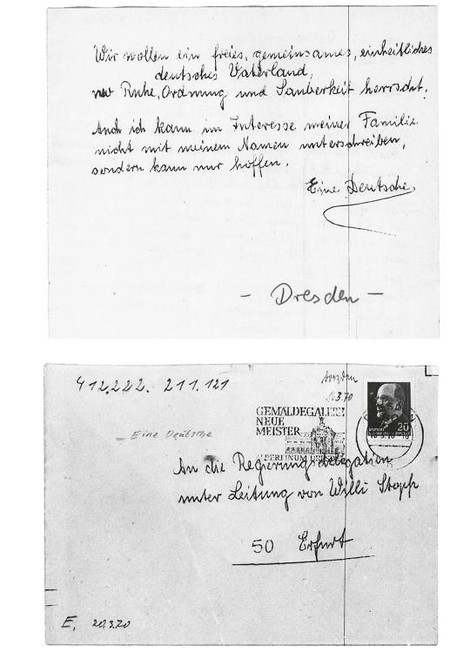 Wir wollen ein freies, gemeinsames, einheitliches
deutsches Vaterland,
wo Ruhe, Ordnung und Sauberkeit herrscht.
Auch ich kann im Interesse meiner Familie
nicht mit meinem Namen unterschreiben,
sondern kann nur hoffen.
Eine Deutsche.
- Dresden -
412.222. 211.121
Dresden
16.3.70
GEMÄLDEGALERIE
NEUE
MEISTER
ALBERTINUM
20
Eine Deutsche
An die Regierungsdelegation
unter Leitung von Willi Stoph
50 Erfurt
E, 20.3.70